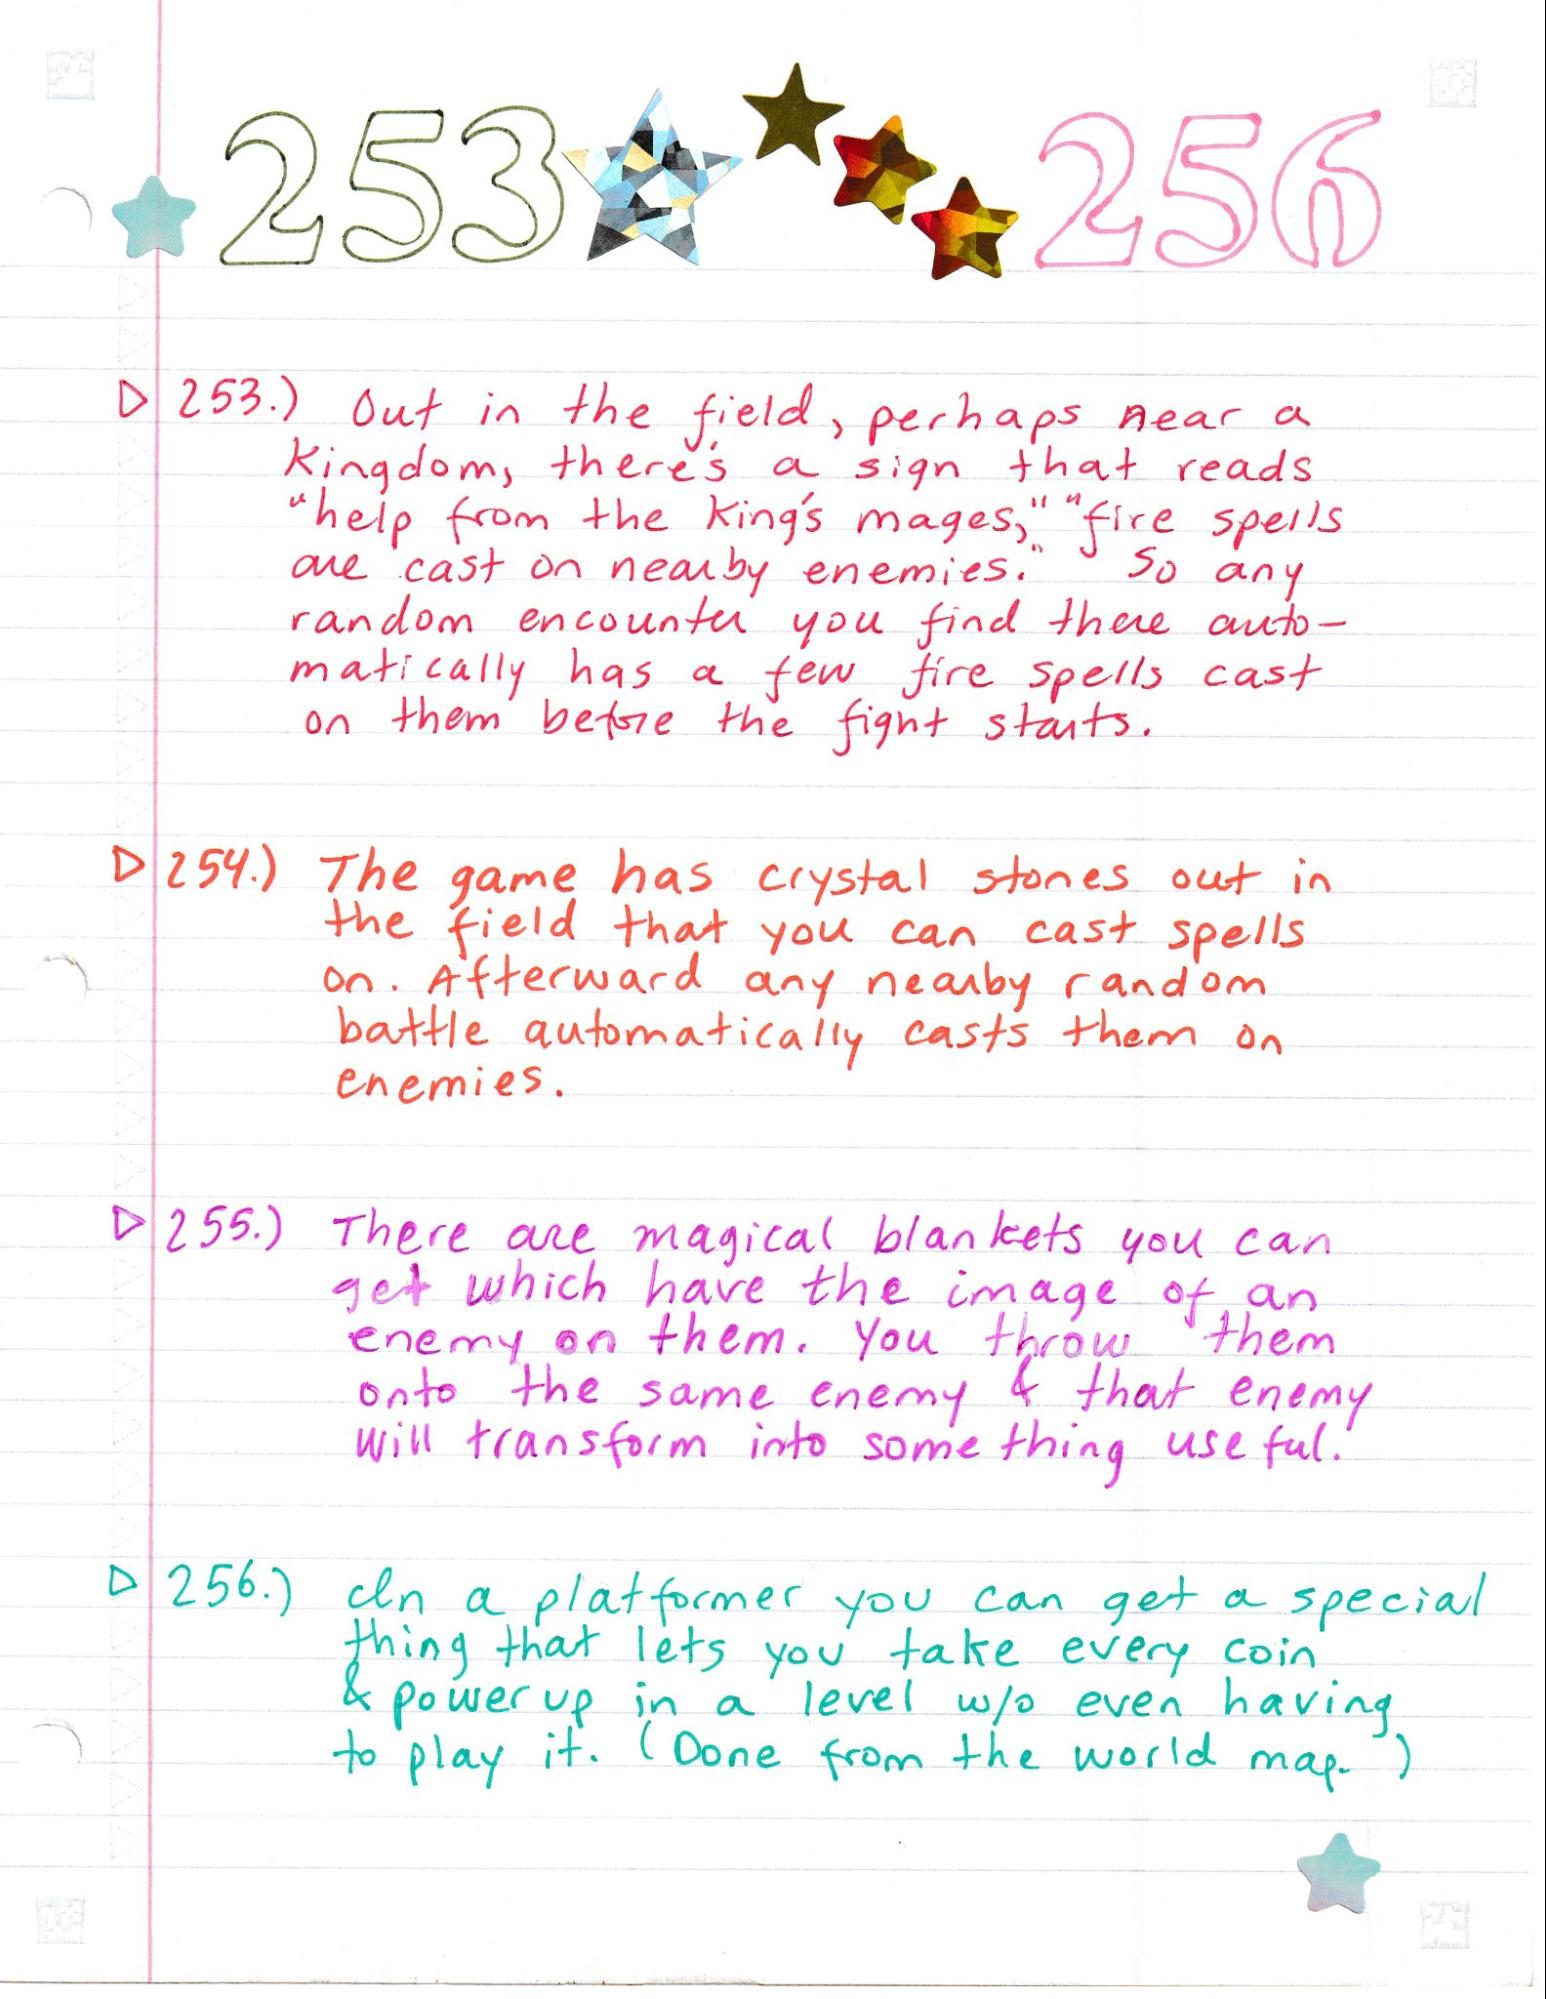 253 256
253.) Out in the field, perhaps near a
kingdom, there's a sign that reads
"help from the king's mages," "fire spells
are cast on nearby enemies." So any
random encounter you find there auto-
matically has a few fire spells cast
on them before the fight starts.
254.) The game has crystal stones out in
the field that you can cast spells
on. Afterward any nearby random
battle automatically casts them on
enemies.
255.) There are magical blankets you can
get which have the image of an
enemy on them. You throw them
onto the same enemy & that enemy
will transform into something useful.
256.) In a platformer you can get a special
thing that lets you take every coin
& powerup in a level w/o even having
to play it. (Done from the world map.)